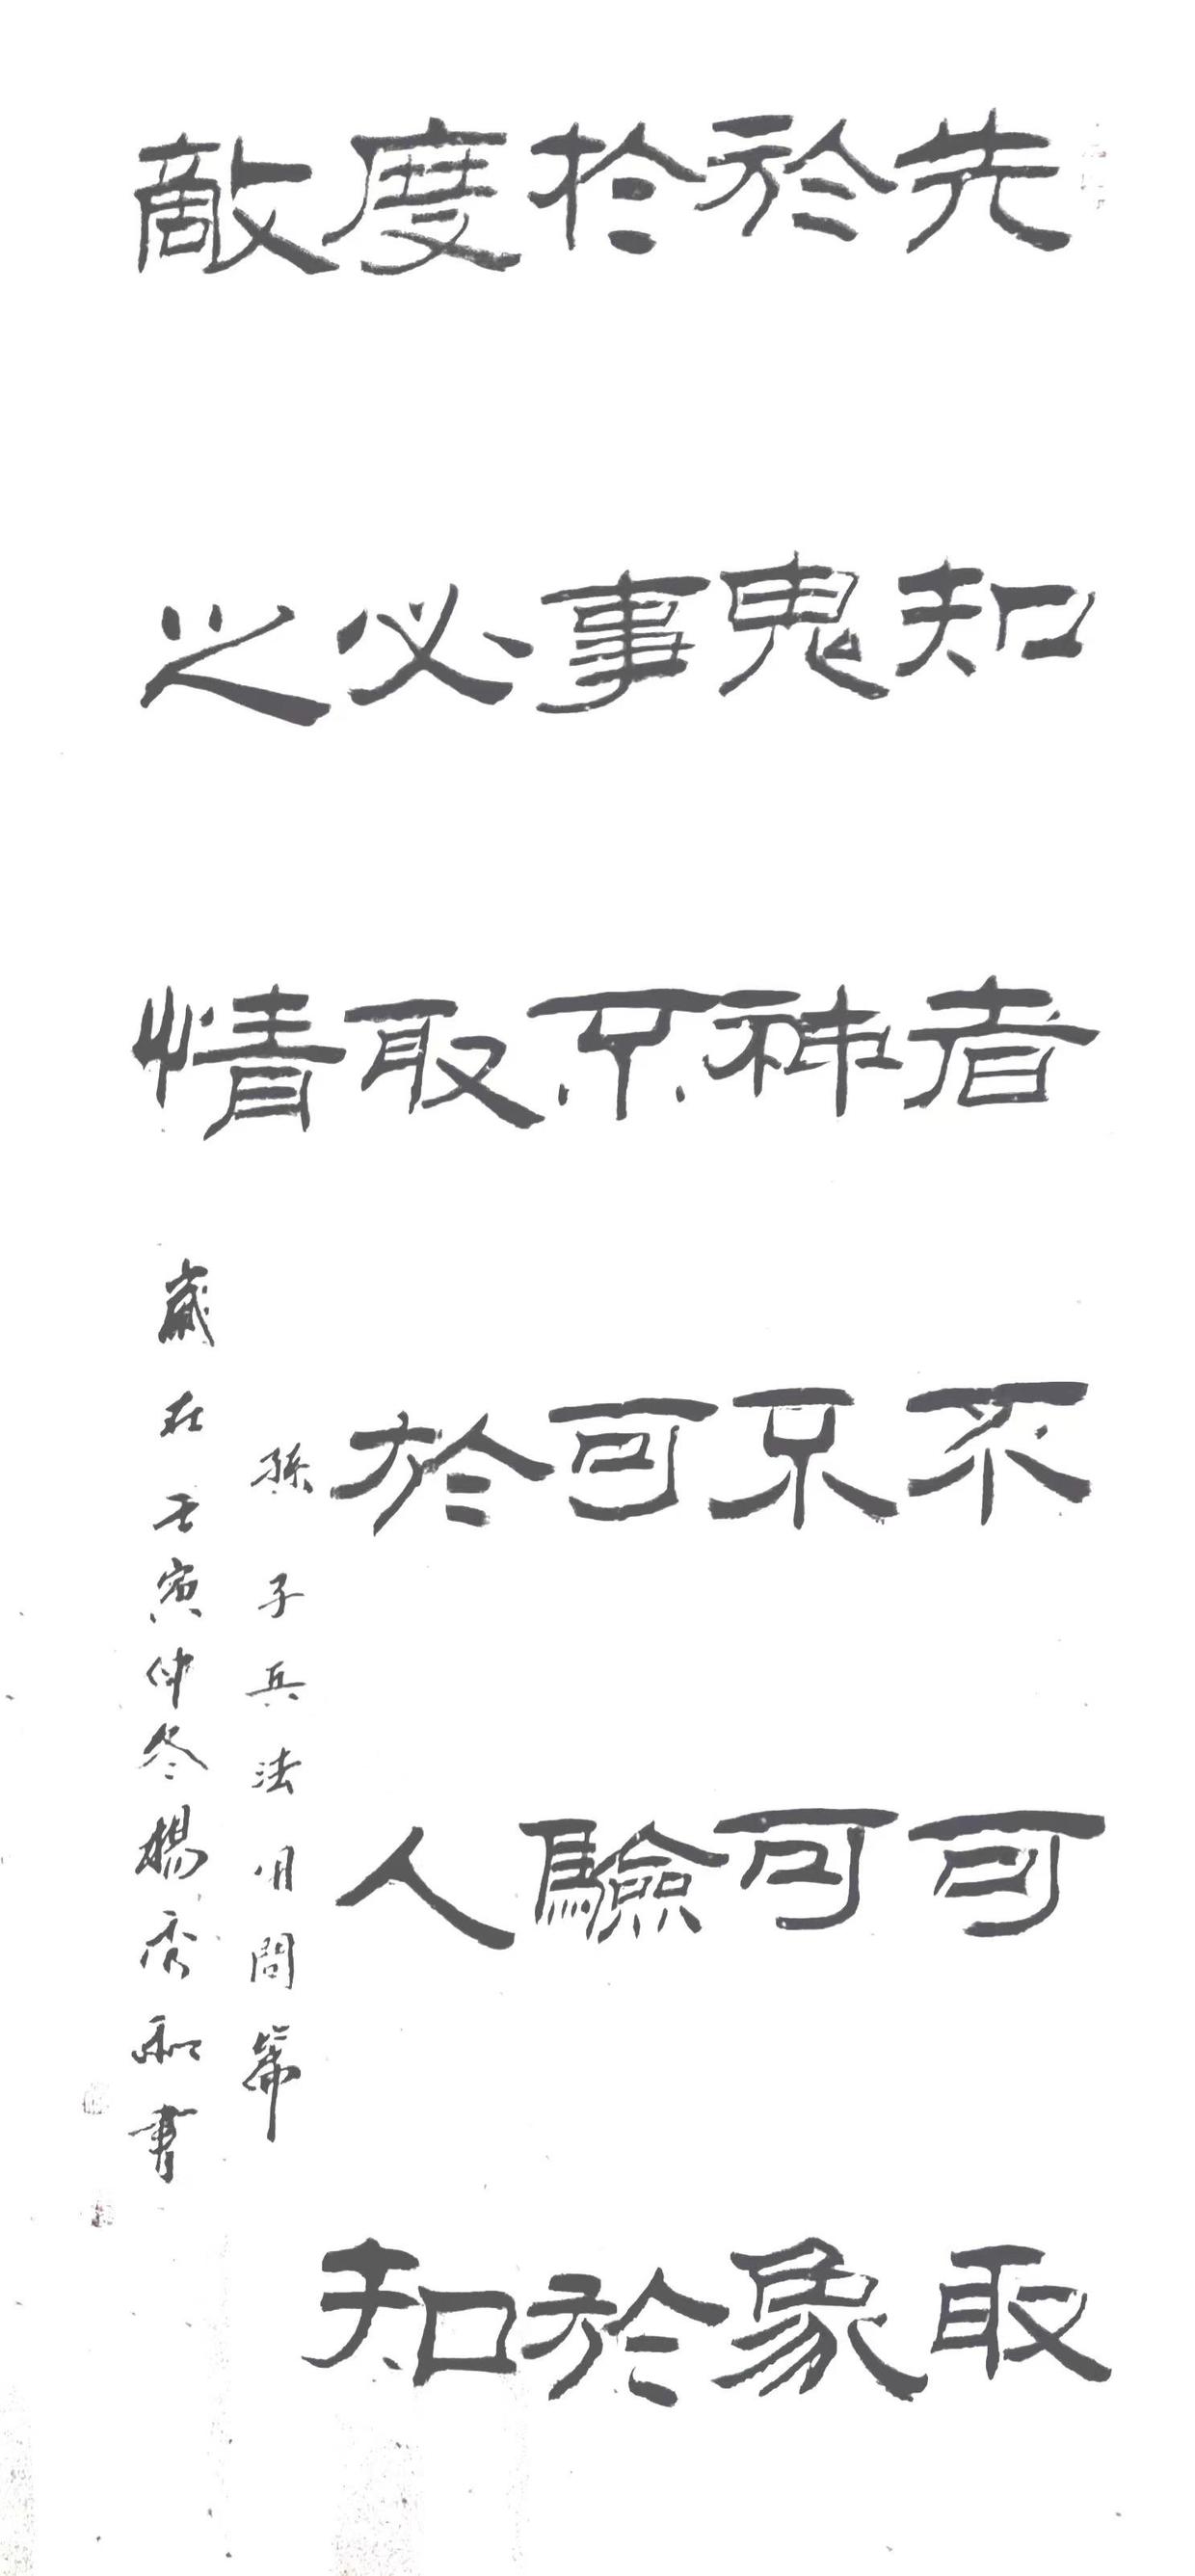 先知者不可取
於鬼神不可象
於事不可驗於
度必取於人知
敵之情
孫子兵法用間篇
歲在壬寅仲冬楊秀和書